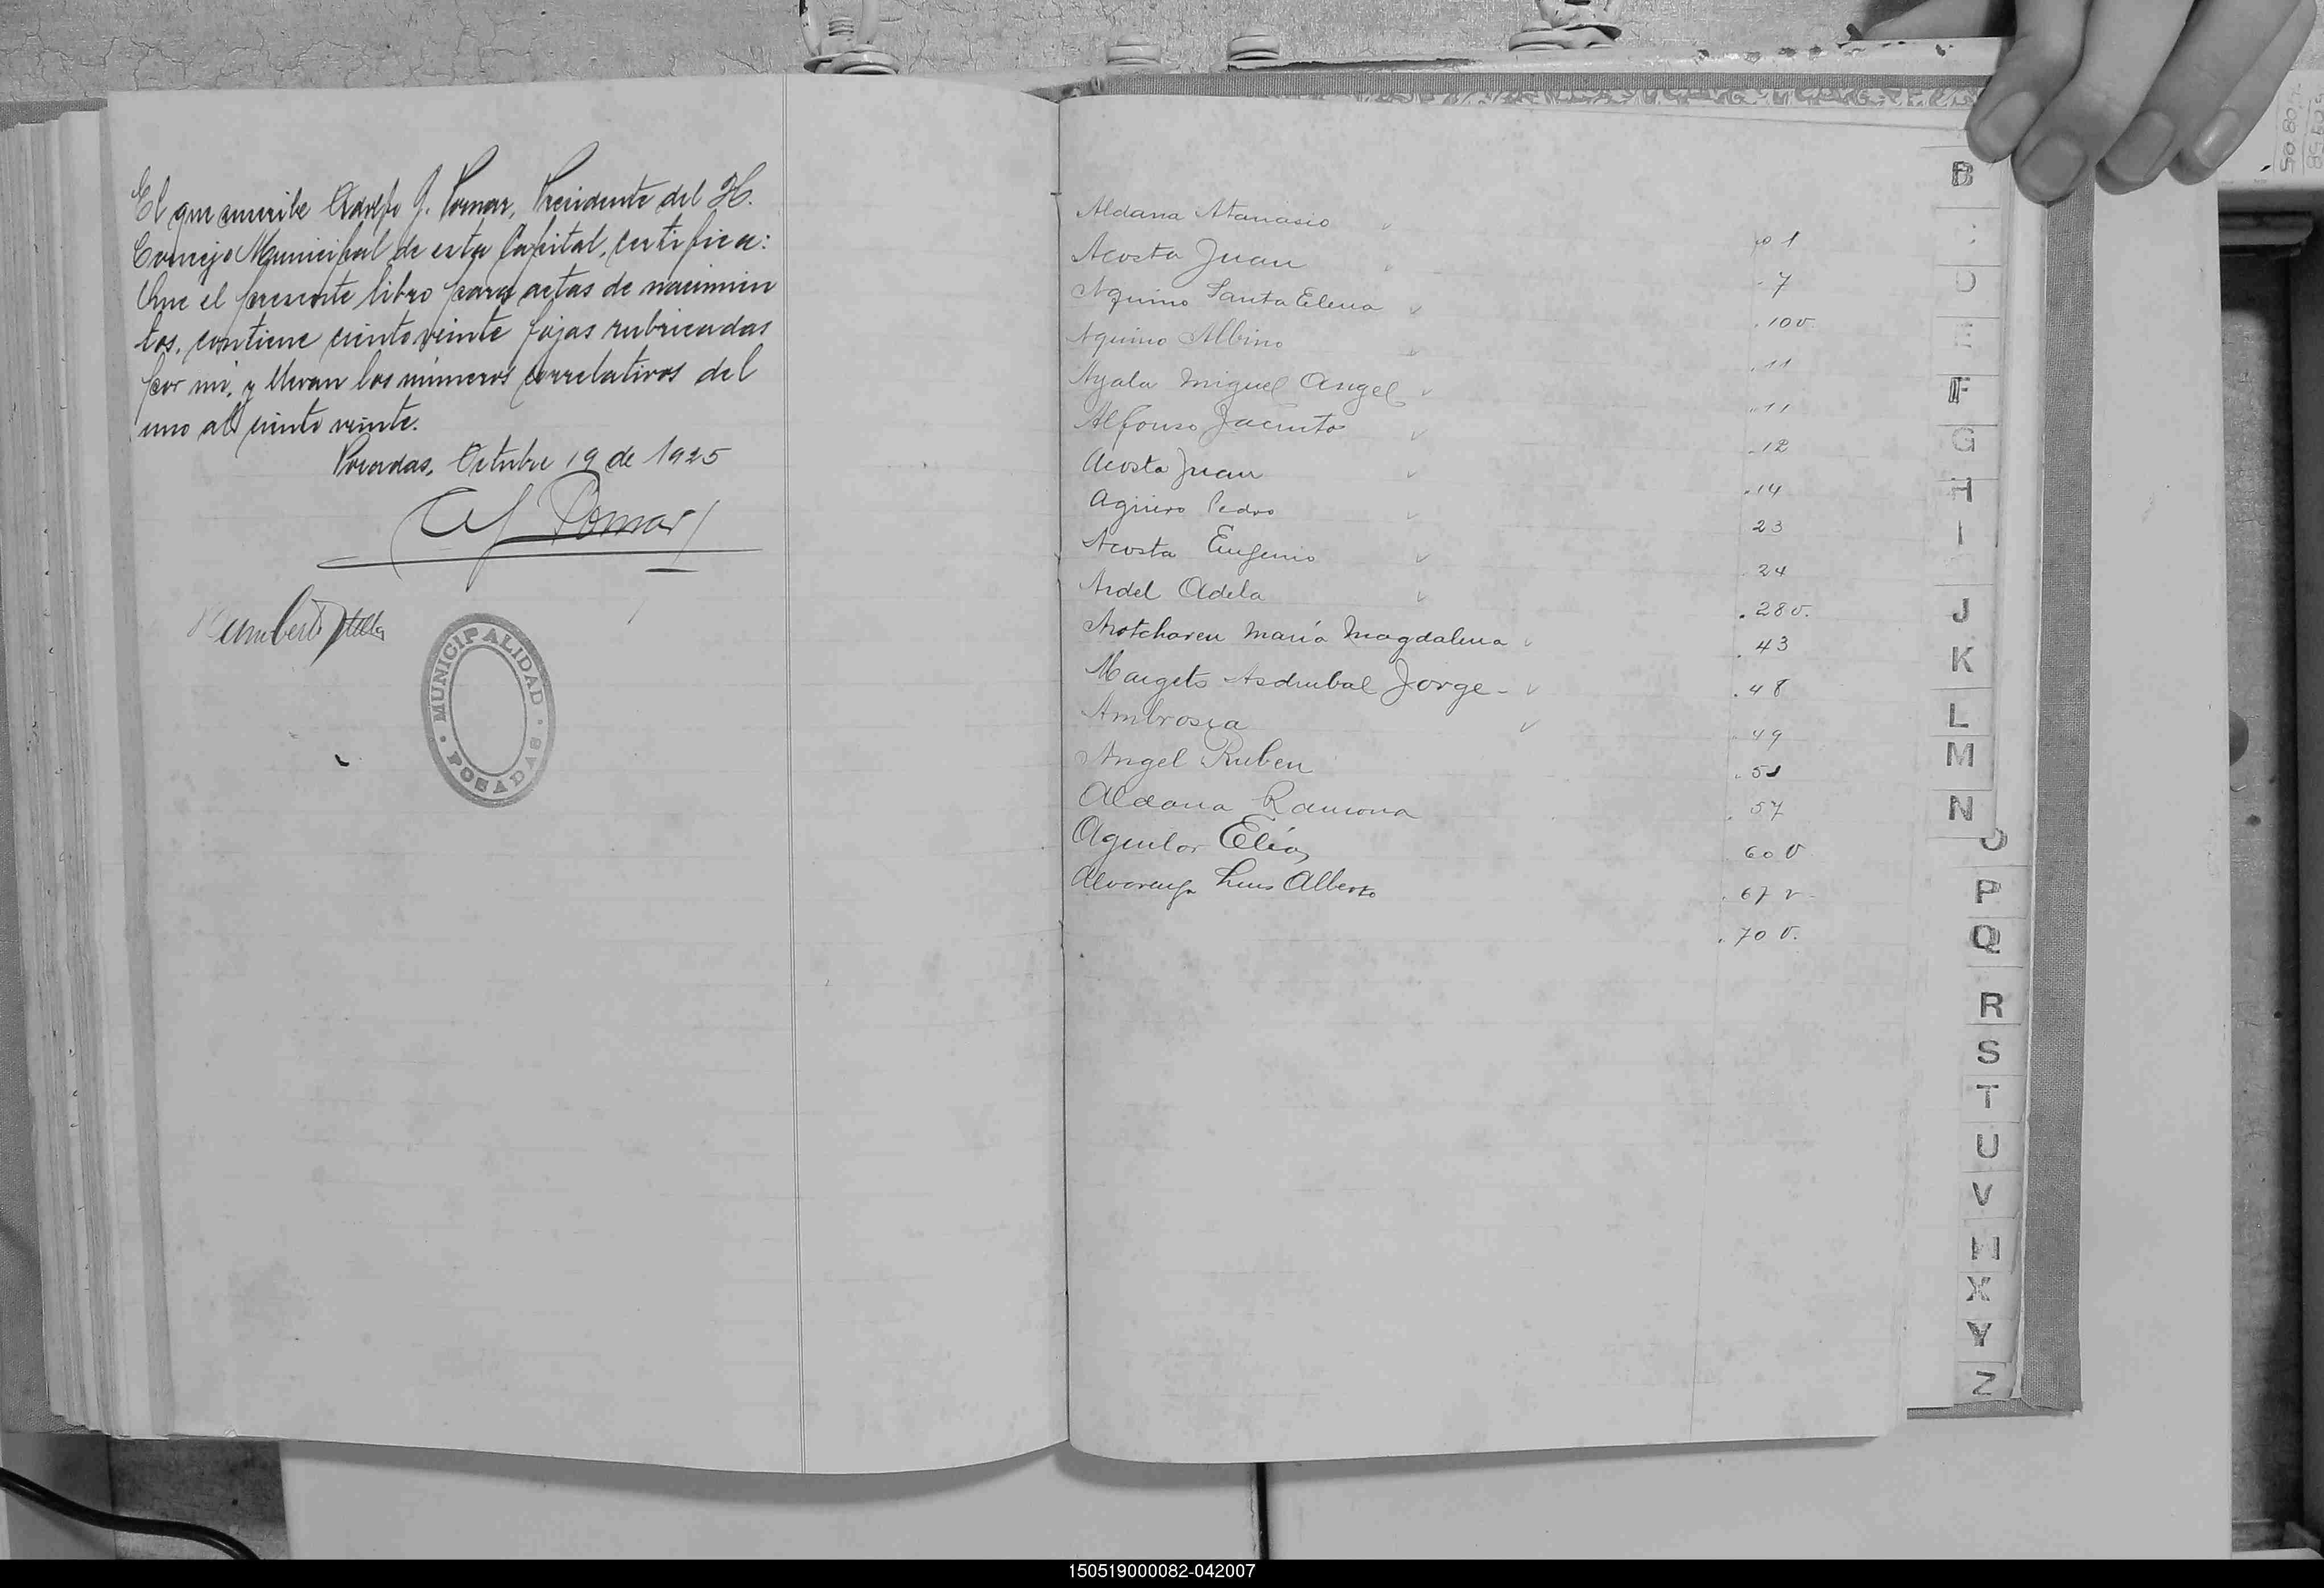 El que suscribe Adolfo J. Pomar, Presidente del H.
Concejo Municipal de esta Capital, certifica:
Que el presente libro para actas de nacimien
tos, contiene ciento veinte fojas rubricadas
por mi, y llevan los números correlativos del
uno al ciento veinte.
Posadas, Octubre 19 de 1925
Pomar
MUNICIPALIDAD
POSADAS
Aldana Atanasio
1
Acosta Juan
7
Aquino Santa Elena
10 v.
Aquino Albino
11
Ayala Miguel Angel
11
Alfonso Jacinto
12
Acosta Juan
14
Agüero Pedro
23
Acosta Eugenio
24
Ardel Adela
28 v.
María Magdalena
43
Asdrubal Jorge -
48
Ambrosia
49
Angel Ruben
51
Aldana Ramona
57
Aguilar Elías
60 v
Alvarenga Luis Alberto
67 v
70 v.
B
D
E
F
G
H
I
J
K
L
M
N
O
P
Q
R
S
T
U
V
X
Y
Z
150519000082-042007